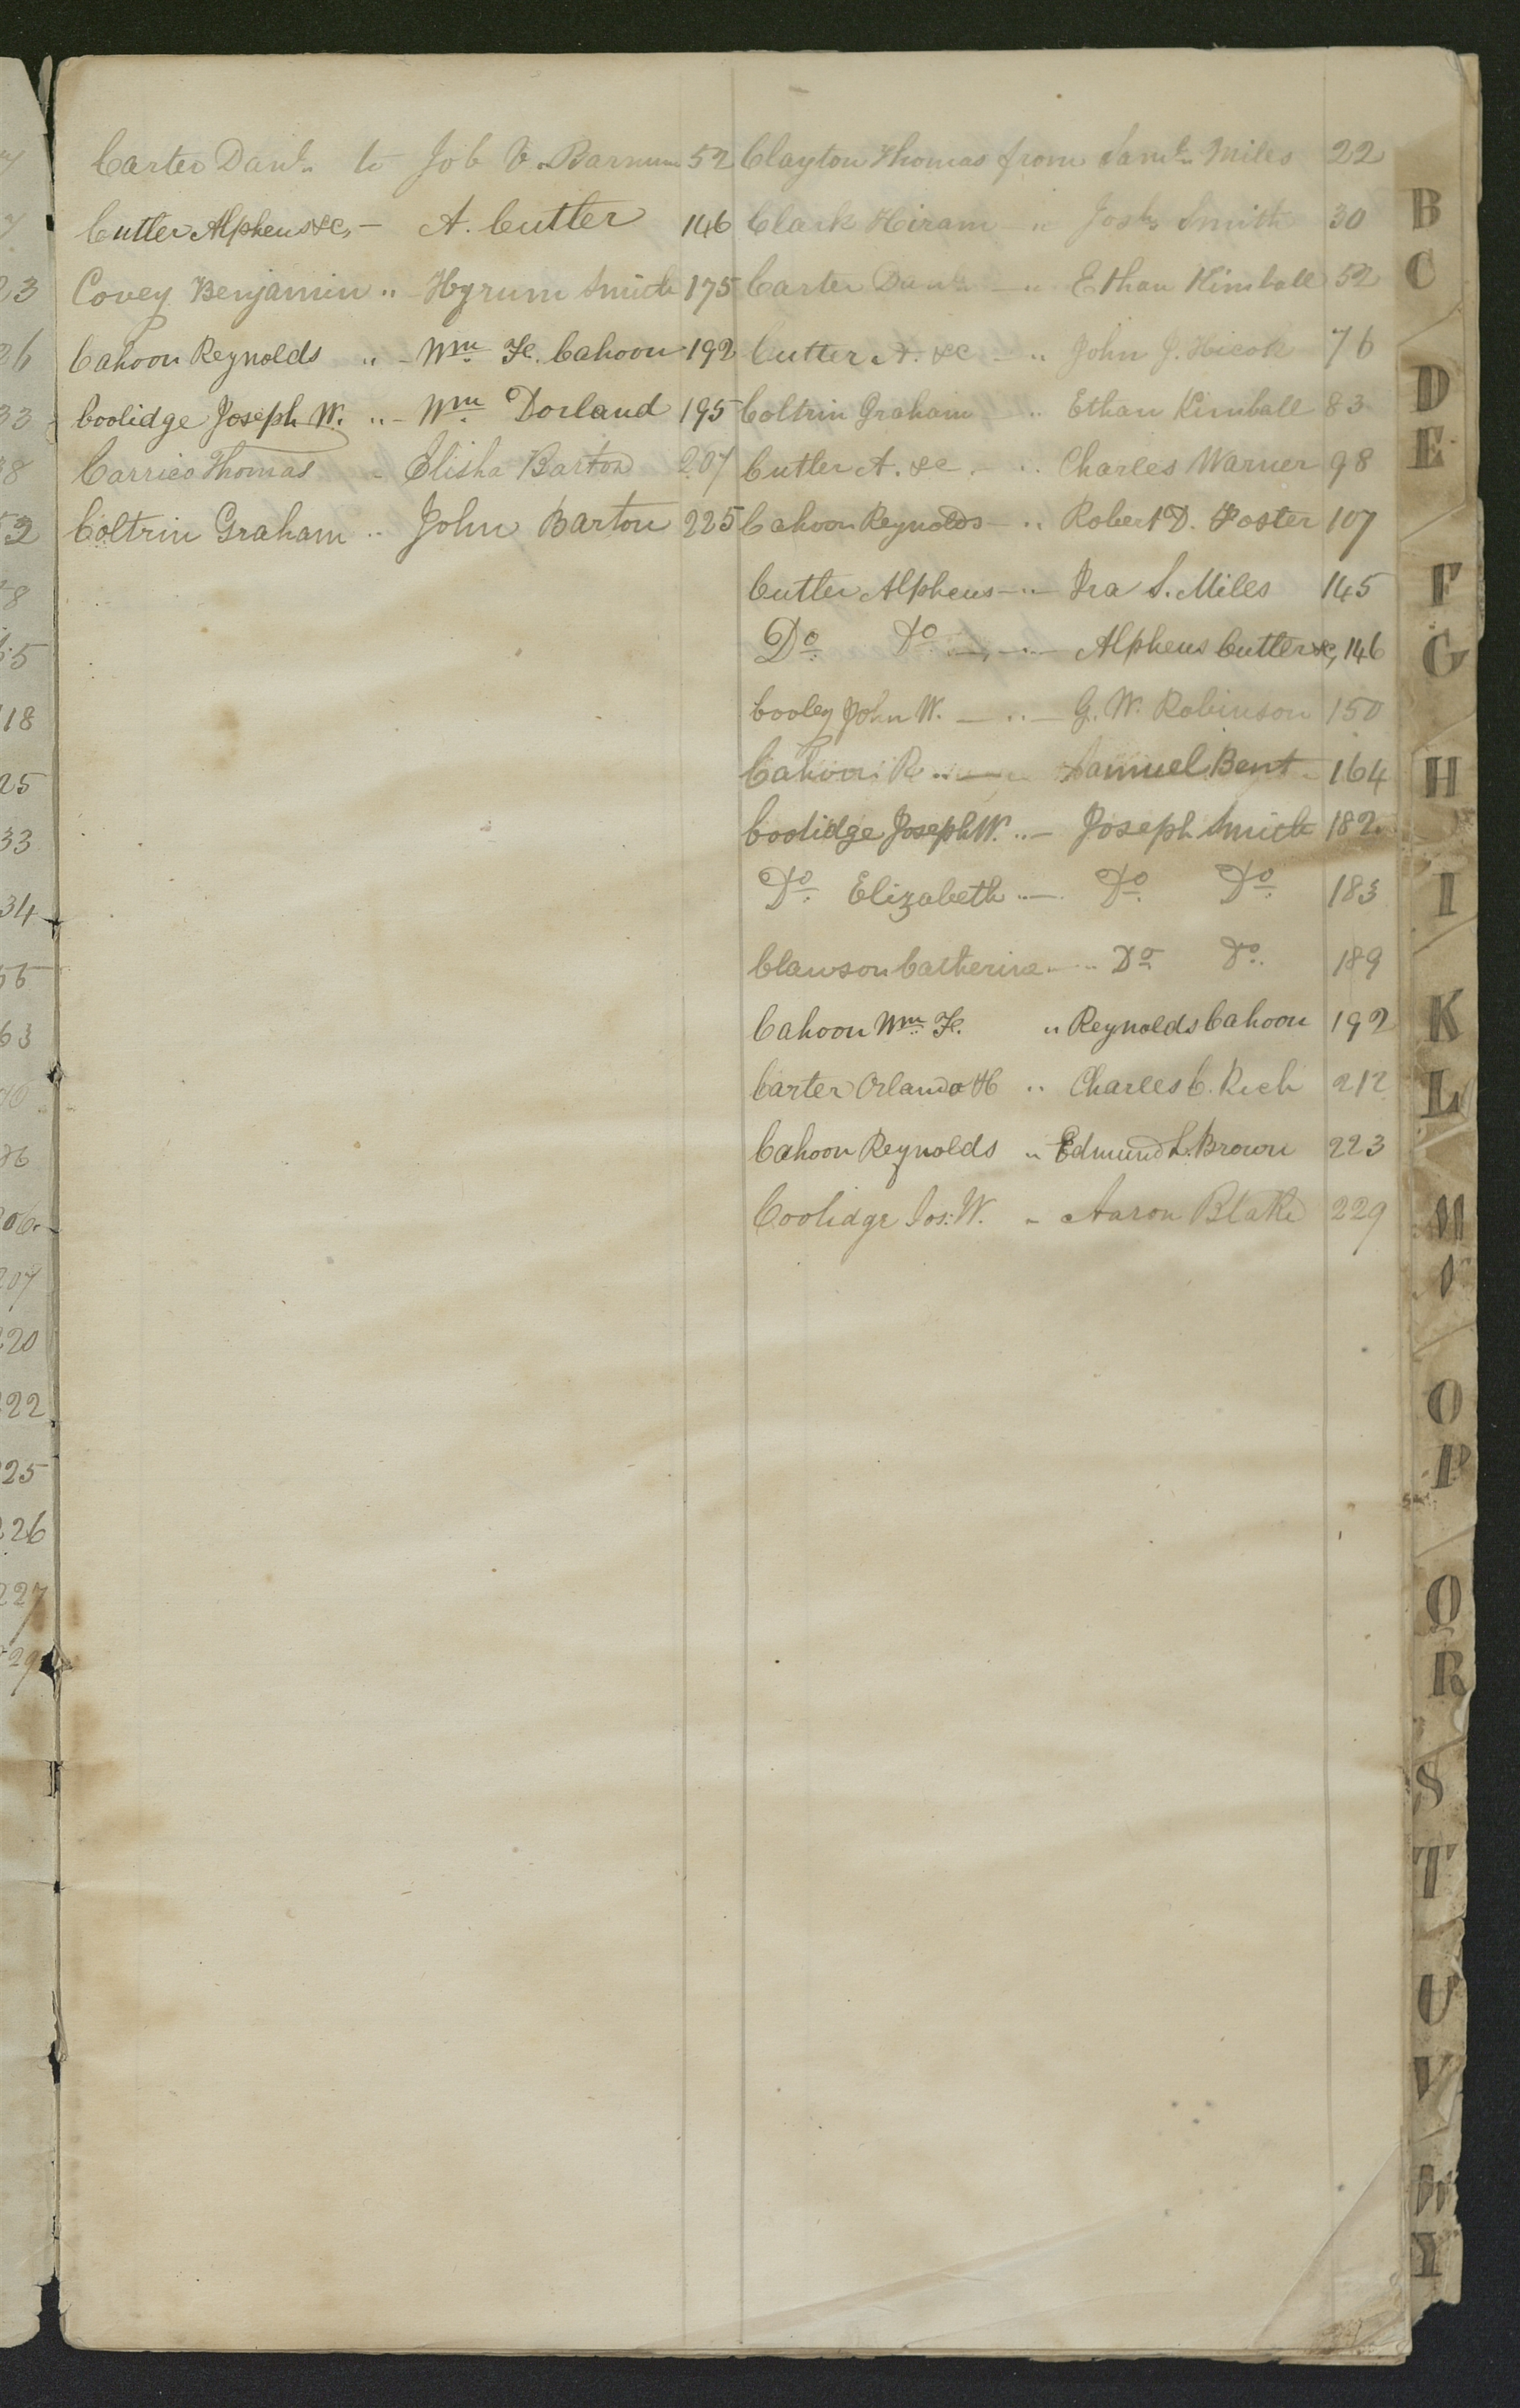 Carter Danl. to Job V. Barnum 52
Cutler Alpheus &c, — A. Cutler 146
Covey Benjamin " - Hyrum Smith 175
Cahoon Reynolds " - Wm. F. Cahoon 192
Coolidge Joseph W. " - Wm. Dorland 195
Carrico Thomas - Elisha Barton 207
Coltrin Graham " John Barton 225
Clayton Thomas from Saml. Miles 22
Clark Hiram — " Josh. Smith 30
Carter Danl. — " Ethan Kimball 52
Cutler A. &c — " John J. Hicok 76
Coltrin Graham — " Ethan Kimball 83
Cutler A. &c. — " Charles Warner 98
Cahoon Reynolds — " Robert D. Foster 107
Cutler Alpheus — " — Ira S. Miles 145
Do. Do. — " — Alpheus Cutler &c, 146
Cooley John W. — " — G. W. Robinson 150
Cahoon R. " — Samuel Bent - 164
Coolidge Joseph W. " — Joseph Smith 182
Do. Elizabeth " — Do. Do. 183
Clawson Catherine — " Do. Do. 189
Cahoon Wm. F. " Reynolds Cahoon 192
Carter Orlando H " Charles C. Rich 212
Cahoon Reynolds " Edmund L. Brown 223
Coolidge Jos: W. " Aaron Blake 229
B
C
D
E
F
G
H
I
K
L
M
O
P
Q
R
S
T
U
V
W
Y
23
26
33
38
52
18
25
33
34
63
207
220
222
225
226
227